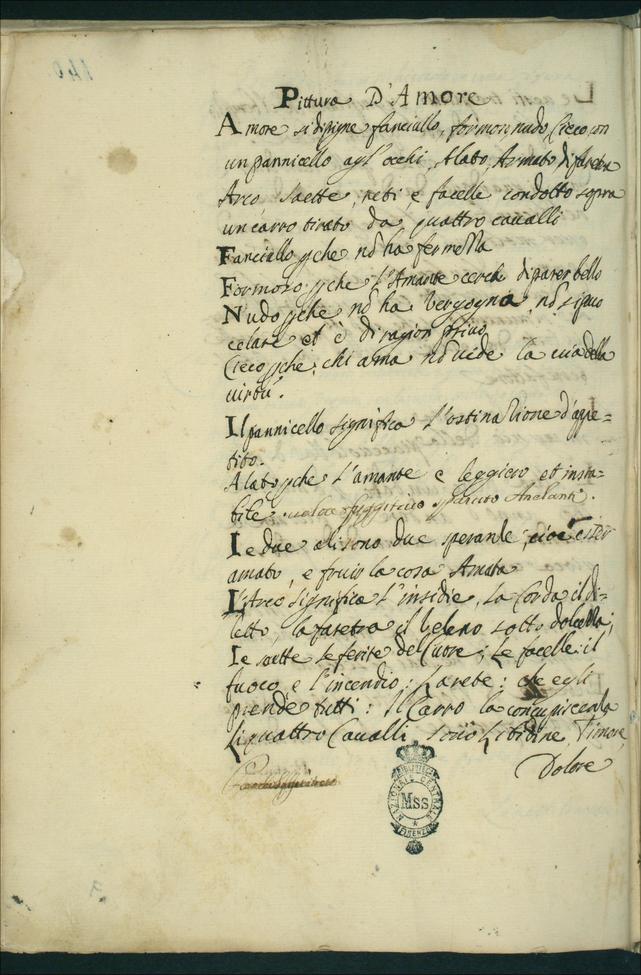 Pittura D'Amore
Amore si dipigne fanciullo, formoso nudo, Cieco con
un pannicello agl' occhi, Alato, Armato di faretra
Arco saette, reti e facelle condotto sopra
un carro tirato da quattro cavalli
Fanciullo pche nō ha fermezza
Formoso pche l'Amante cerca di parer bello
Nudo pche nō ha vergogna, nō si puo
celare et è di ragion privo
Cieco pche: chi ama nō vede la via della
virtù.
Il pannicello significa l'ostinazione d'appe=
tito.
Alato pche l'amante e leggiero et insta=
bile
Le due ali sono due speranze; cioè esser
amato, e fruir la cosa Amata
L'Arco significa l'insidie, La Corda il di=
letto, la faretra il veleno sotto dolcezza;
Le saette le ferite del Cuore; Le facelle: il
fuoco, e l'incendio: La rete: che egli
prende tutti: Il Carro la concupiscenza
Li quattro Cavalli sono Libidine, Timore,
Dolore
BIBLIOTECA NAZIONALE CENTRALE
Mss
FIRENZE